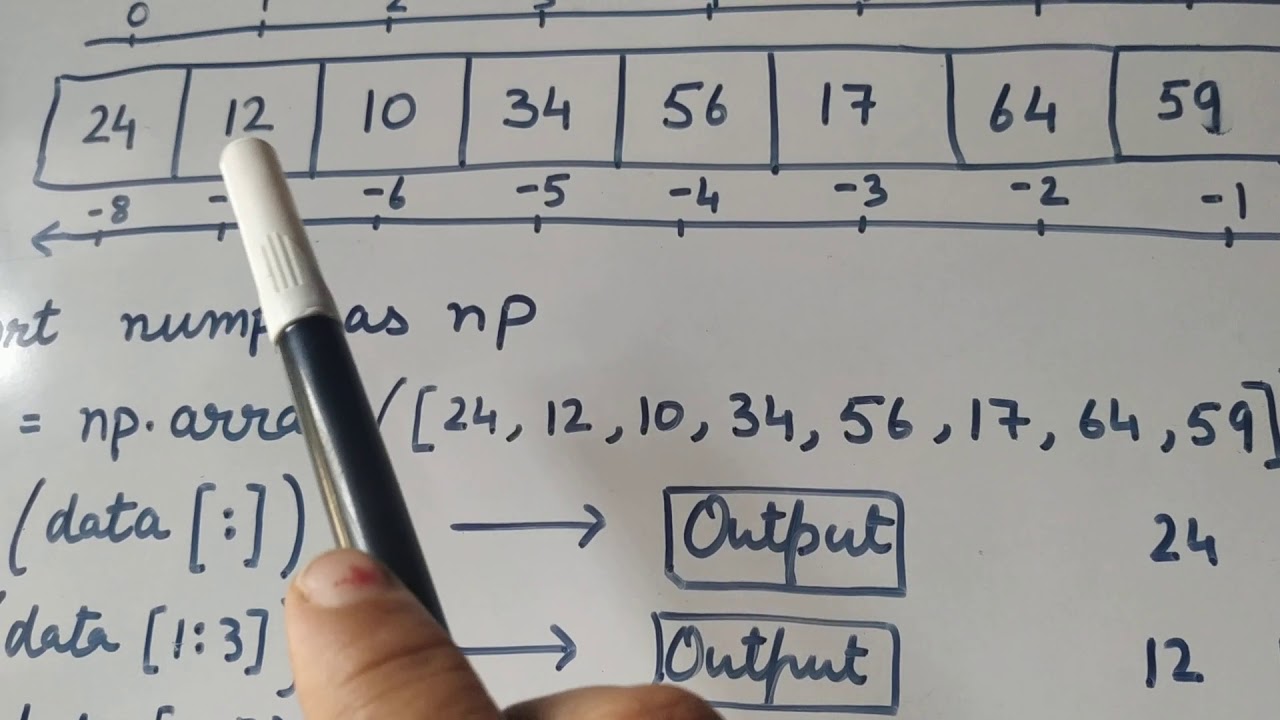 0 1 2 3
24 12 10 34 56 17 64 59
-8 - -6 -5 -4 -3 -2 -1
as np
= np.arra ([24, 12, 10, 34, 56, 17, 64, 59]
(data [:]) → Output 24
(data [1:3] → Output 12